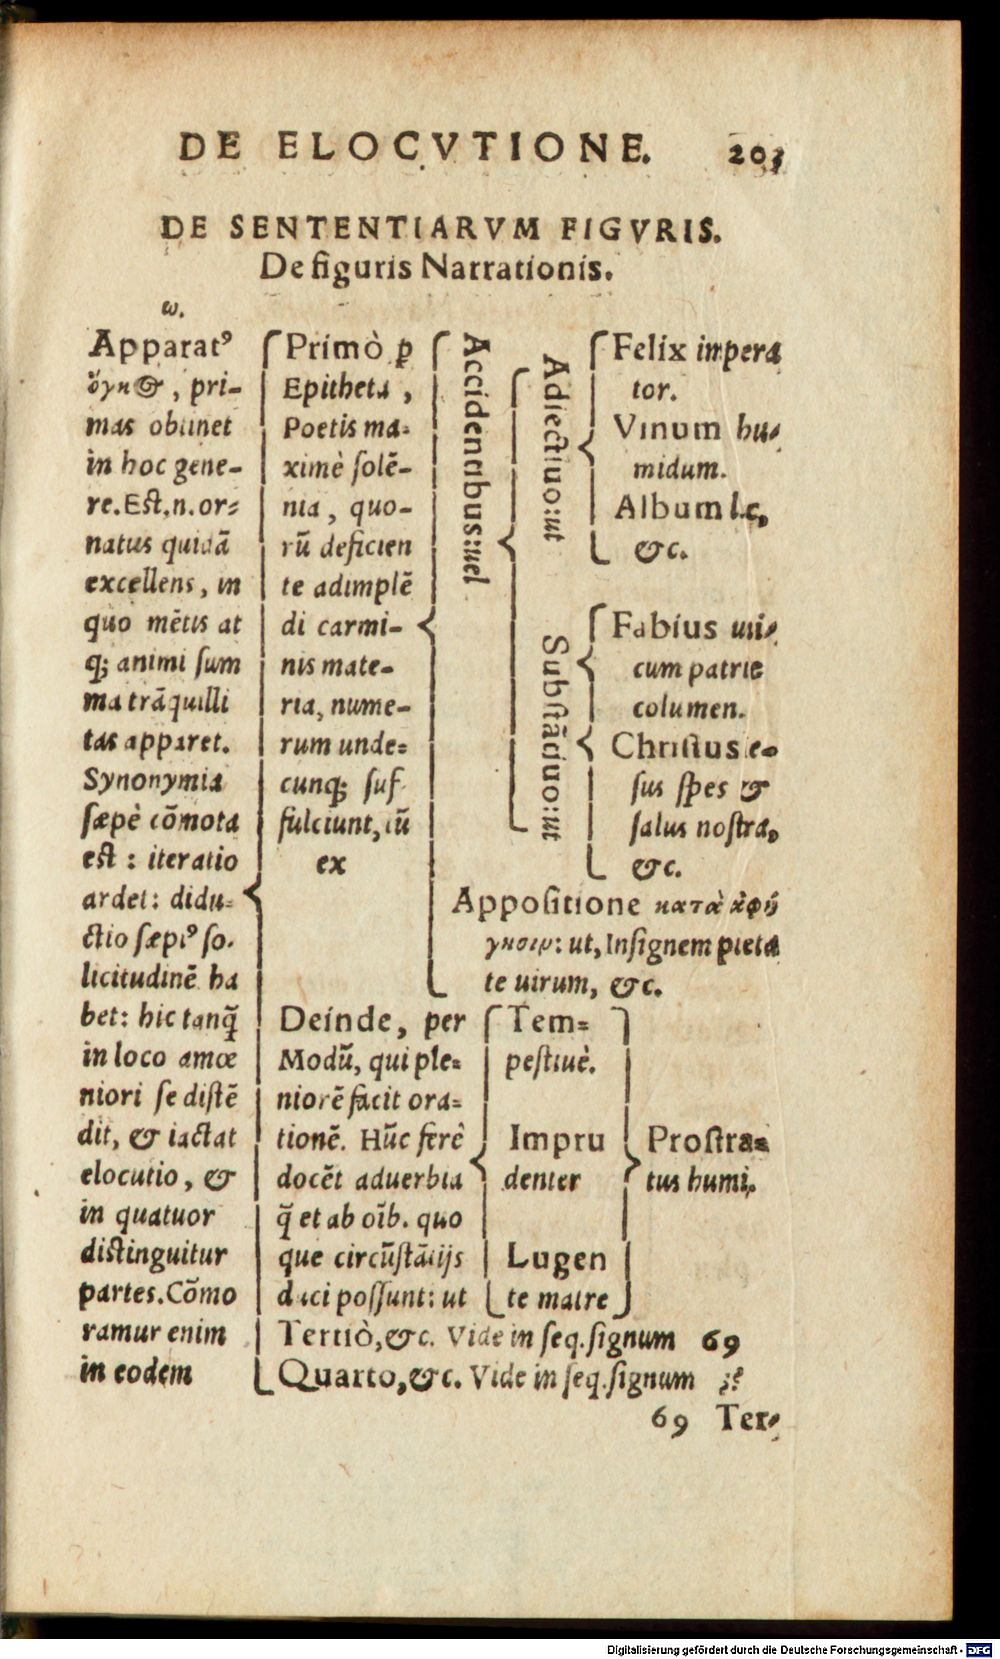 DE ELOCVTIONE. 203
DE SENTENTIARVM FIGVRIS.
De figuris Narrationis.
ω.
Apparatꝰ
ὄγκ , pri-
mas obtinet
in hoc gene-
re. Est.n.or-
natus quidã
excellens, in
quo mẽtis at
q; animi sum
ma trãquilli
tas apparet.
Synonymia
sæpè cõmota
est : iteratio
ardet: didu-
ctio sæpiꝰ so-
licitudinẽ ha
bet: hic tanq̃
in loco amœ
niori se distẽ
dit, & iactat
elocutio, &
in quatuor
distinguitur
partes. Cõmo
ramur enim
in eodem
Primò ꝑ
Epitheta ,
Poetis ma-
ximè solẽ-
nia, quo-
rũ deficien
te adimplẽ
di carmi-
nis mate-
ria, nume-
rum unde-
cunq; suf
fulciunt, cũ
ex
Accidentibus: uel
Adiectiuo: ut
Felix impera
tor.
Vinum hu-
midum.
Album
&c.
Substãtiuo: ut
Fabius uni-
cum patrie
columen.
Christus e-
sus spes &
salus nostra,
&c.
Appositione κατὰ ἀφή
γησιν: ut, Insignem pieta
te uirum, &c.
Deinde, per
Modũ, qui ple-
niorẽ facit ora-
tionẽ. Hũc ferè
docẽt aduerbia
q̃ et ab oĩb. quo
que circũstãtijs
duci possunt: ut
Tem-
pestiuè.
Impru
denter
Lugen
te matre
Prostra-
tus humi.
Tertiò, &c. Vide in seq. signum 69
Quarto, &c. Vide in seq. signum
69 Ter-
Digitalisierung gefördert durch die Deutsche Forschungsgemeinschaft - DFG